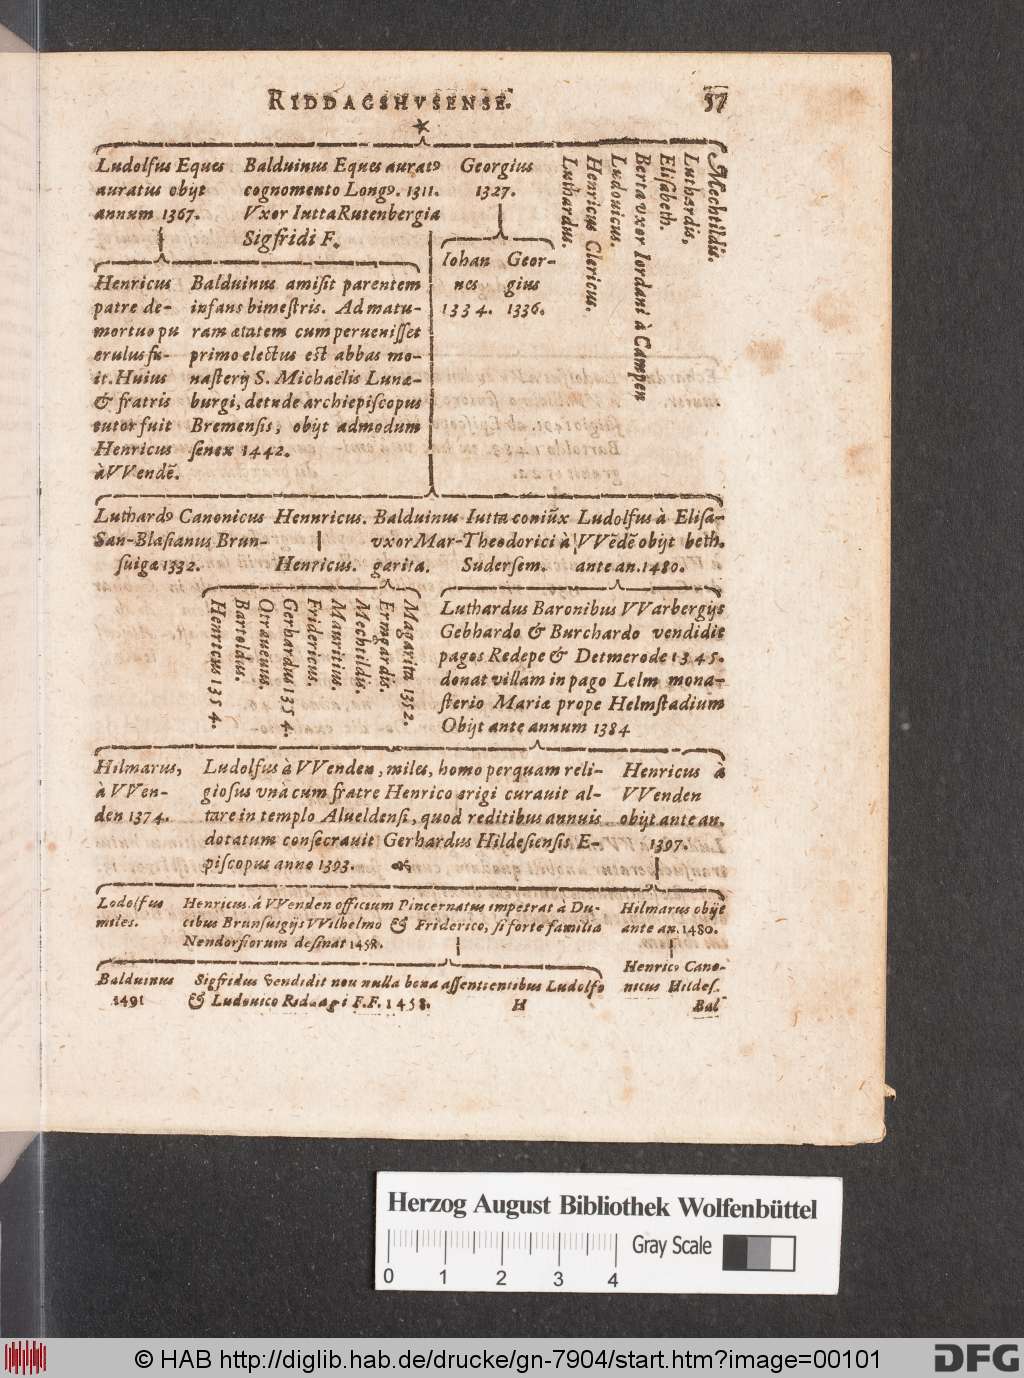 RIDDAGSHVSENSE. 57
*
Ludolfus Eques
auratus obijt
annum 1367.
Balduinus Eques aurat9
cognomento Long9. 1311.
Vxor Iutta Rutenbergia
Sigfridi F.
Georgius
1327.
Luthardus.
Henricus Clericus.
Ludouicus.
Berta vxor Iordani à Campen
Elisabeth.
Luthardis,
Mechtildis.
Iohan Geor-
nes gius
1334. 1336.
Henricus
patre de-
mortuo pu
erulus fu-
it. Huius
& fratris
tutor fuit
Henricus
à VVendē.
Balduinus amisit parentem
infans bimestris. Ad matu-
ram ætatem cum peruenisset
primo electus est abbas mo-
nasterij S. Michaëlis Lunæ-
burgi, deinde archiepiscopus
Bremensis, obijt admodum
senex 1442.
Luthard9 Canonicus
San-Blasianus Brun-
suigæ 1332.
Hennricus.
Henricus.
Balduinus
vxor Mar-
garita.
Iutta coniūx
Theodorici à
Sudersem.
Ludolfus à
VVēdē obijt
ante an. 1480.
Elisa-
beth.
Henricus 1354.
Bartoldus.
Otrauenus.
Gerhardus 1354.
Fridericus.
Mauritius.
Mechtildis.
Ermgardis.
Magarita 1352.
Luthardus Baronibus VVarbergijs
Gebhardo & Burchardo vendidit
pagos Redepe & Detmerode 1345.
donat villam in pago Lelm mona-
sterio Mariæ prope Helmstadium
Obijt ante annum 1384
Hilmarus,
à VVen-
den 1374.
Ludolfus à VVenden, miles, homo perquam reli-
giosus vnà cum fratre Henrico erigi curauit al-
tare in templo Alueldensi, quod reditibus annuis
dotatum consecrauit Gerhardus Hildesiensis E-
piscopus anno 1393.
Henricus à
VVenden
obijt ante an.
1397.
Lodolfus
miles.
Henricus à VVenden officium Pincernatus impetrat à Du-
cibus Brunsuigijs VVilhelmo & Friderico, si forte familia
Nendorfiorum desinat 1458.
Hilmarus obijt
ante an. 1480.
Balduinus
1491
Sigfridus vendidit non nulla bona assentientibus Ludolfo
& Ludouico Ridaagi F.F. 1458.
Henric9 Cano-
nicus Hildes.
H Bal-
Herzog August Bibliothek Wolfenbüttel
Gray Scale
0 1 2 3 4
© HAB http://diglib.hab.de/drucke/gn-7904/start.htm?image=00101
DFG